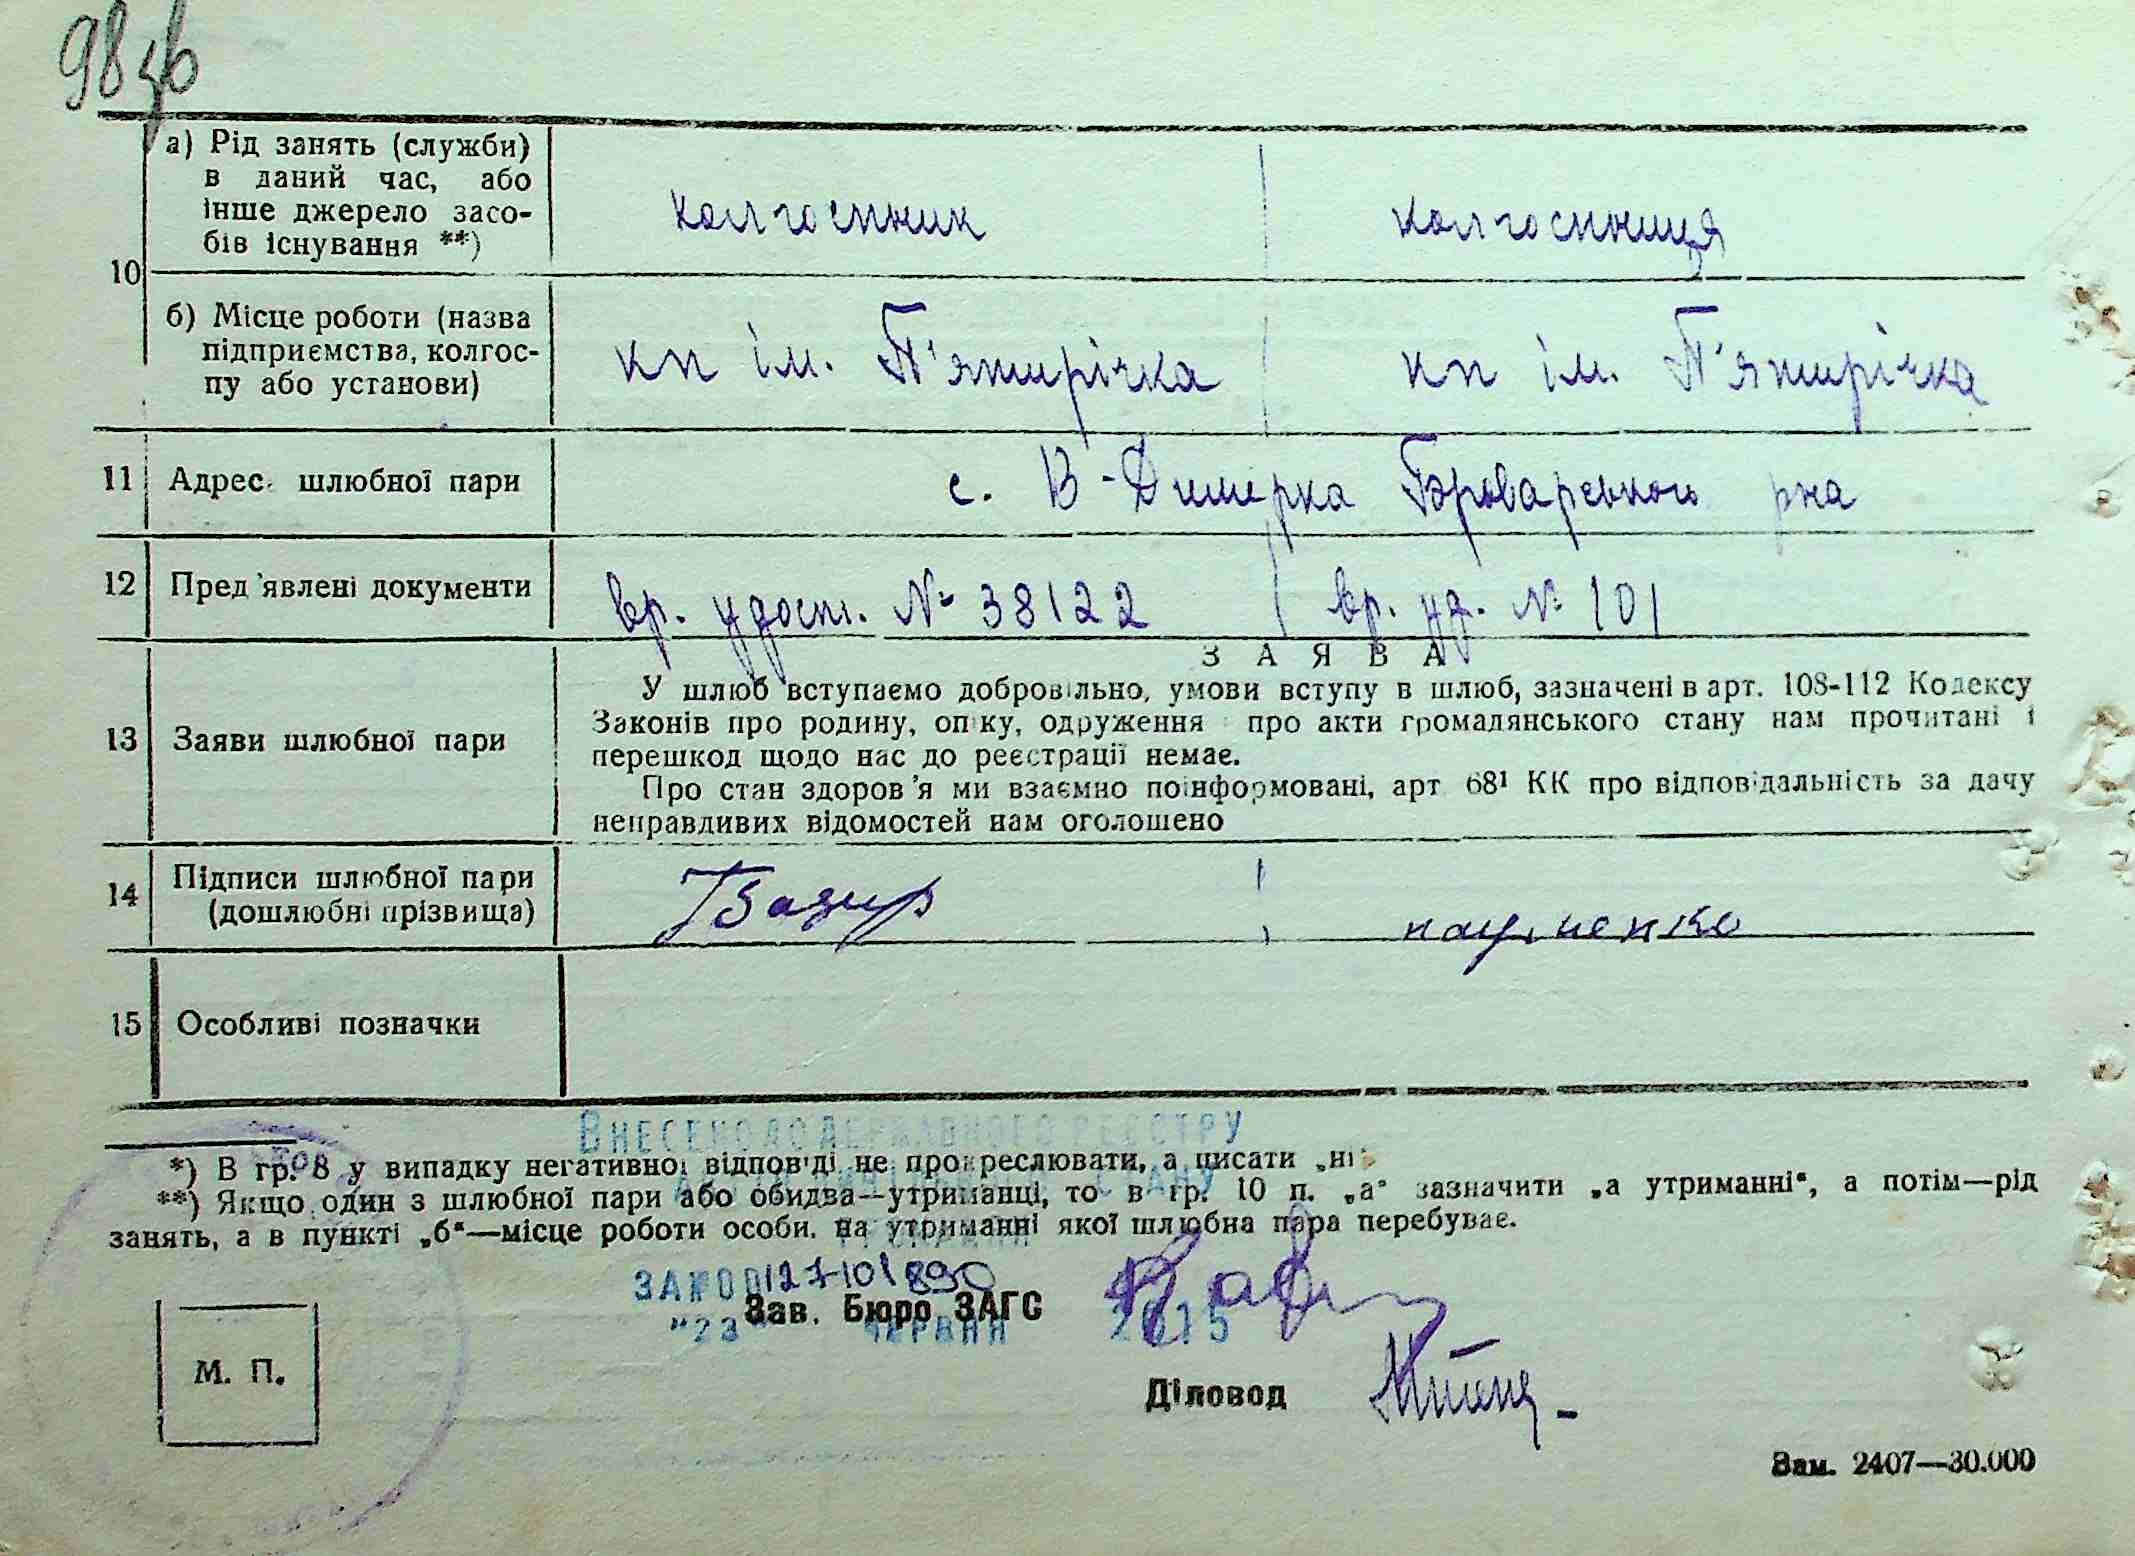 98зв
а) Рід занять (служби)
в даний час, або
інше джерело засо-
бів існування **)
колгоспник
колгоспниця
10
б) Місце роботи (назва
підприємства, колгос-
пу або установи)
кп ім. П'ятирічка
кп ім. П'ятирічка
11 Адрес шлюбної пари
с. В-Димерка Броварського рна
12 Пред'явлені документи
вр. удост. № 38122
вр. уд. № 101
ЗАЯВА
13 Заяви шлюбної пари
У шлюб вступаємо добровільно, умови вступу в шлюб, зазначені в арт. 108-112 Кодексу
Законів про родину, опіку, одруження про акти громадянського стану нам прочитані і
перешкод щодо нас до реєстрації немає.
Про стан здоров'я ми взаємно поінформовані, арт 68¹ КК про відповідальність за дачу
неправдивих відомостей нам оголошено
14 Підписи шлюбної пари
(дошлюбні прізвища)
науменко
15 Особливі позначки
Внесено до державного реєстру
*) В гр. 8 у випадку негативної відповіді не прокреслювати, а писати „ні“
актів цивільного стану
**) Якщо один з шлюбної пари або обидва—утриманці, то в гр. 10 п. „а“ зазначити „а утриманні“, а потім—рід
занять, а в пункті „б“—місце роботи особи. на утриманні якої шлюбна пара перебуває.
громадян
за № 00127101890
Зав. Бюро ЗАГС
"23" червня 2015
М. П.
Діловод
Зам. 2407—30.000